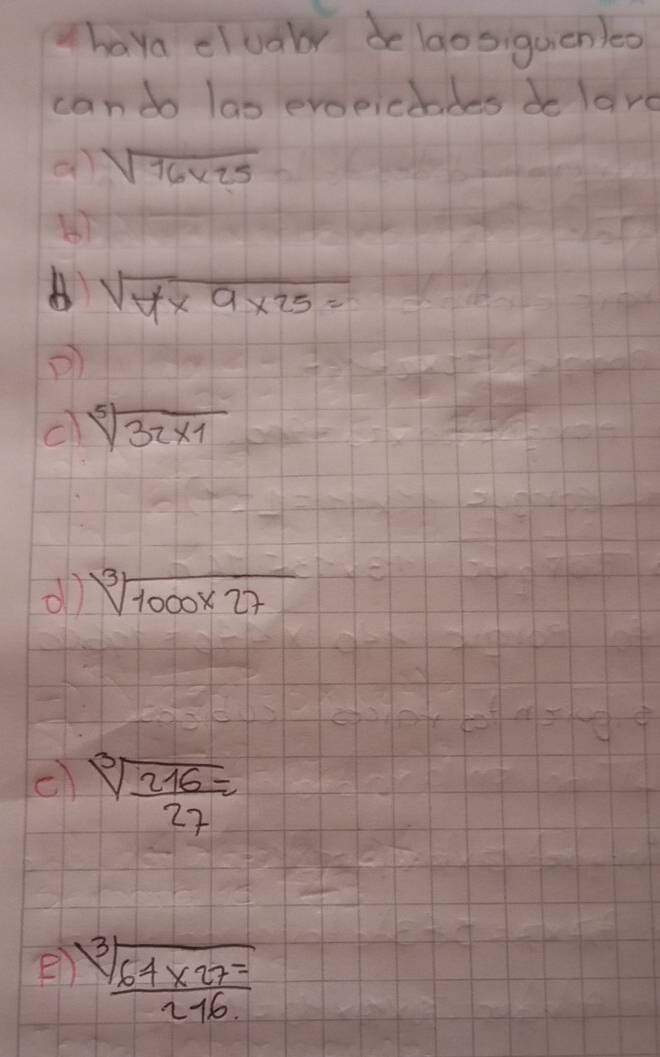 haya el valor de laosiguienleo
cando las propiedades de lara
a) √16x25
b)
b) √4x 9x25=
D)
c) ⁵√32x1
d) ³√1000x27
e) ³√216=
27
E) ³√64x27=
216.